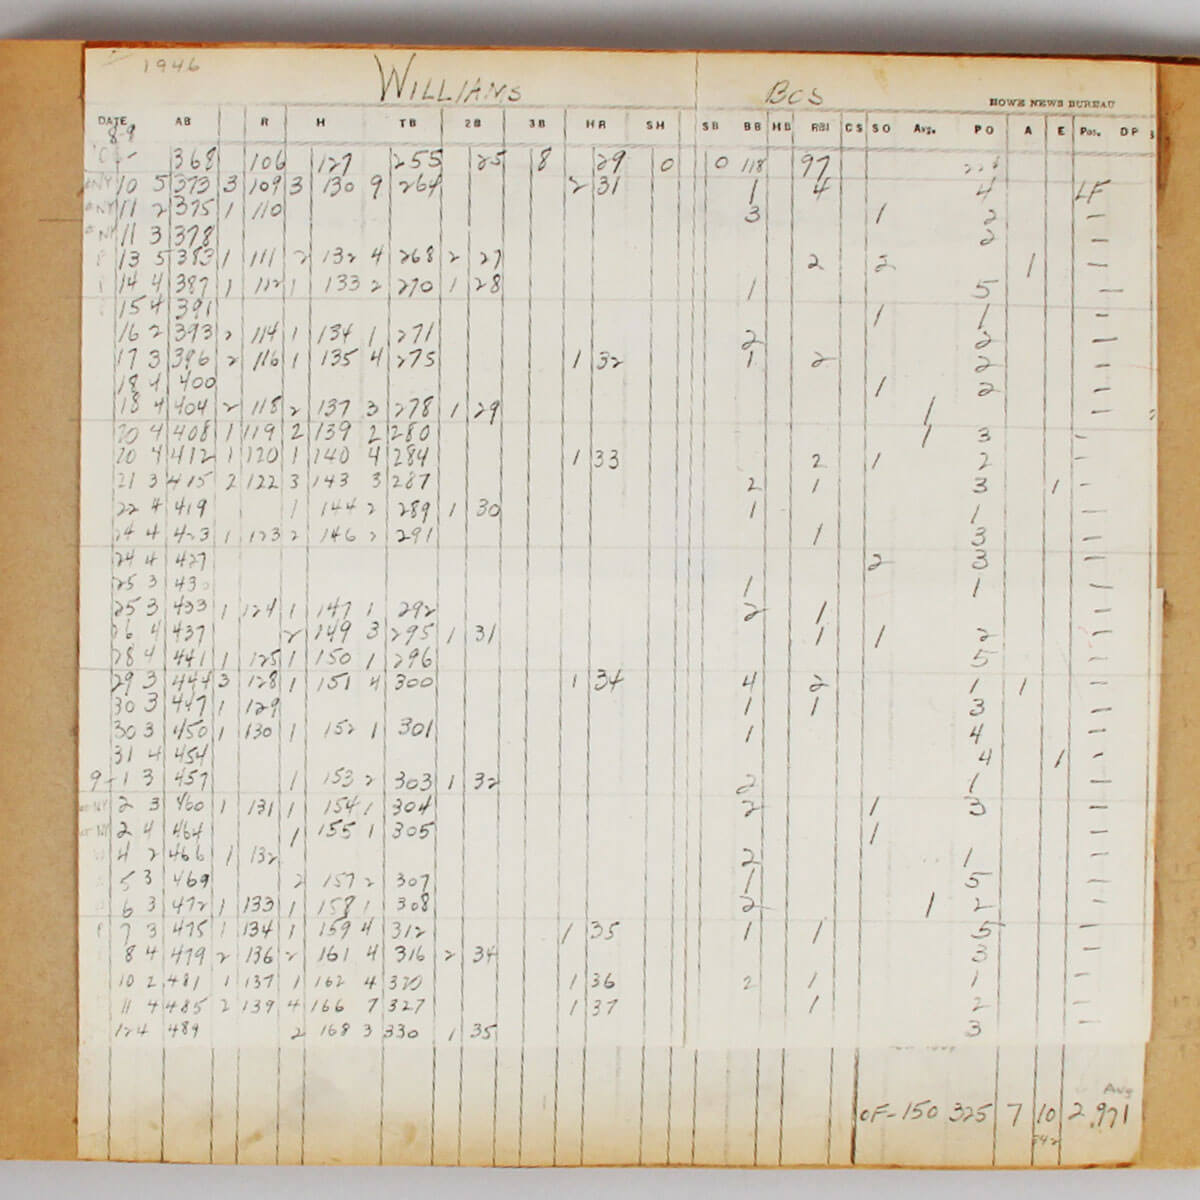 1946 WILLIAMS BOS HOWE NEWS BUREAU
DATE AB R H TB 2B 3B HR SH SB BB HB RBI CS SO Avg. PO A E Pos. DP
8-9
368 106 127 255 25 8 29 0 0 118 97
NY 10 5 373 3 109 3 130 9 264 2 31 1 4 4 LF
NY 11 2 375 1 110 3 1 2 —
NY 11 3 378 2 —
P 13 5 383 1 111 2 132 4 268 2 27 2 2 1 —
14 4 387 1 112 1 133 2 270 1 28 1 5 —
15 4 391 1 1 —
16 2 393 2 114 1 134 1 271 2 2 —
17 3 396 2 116 1 135 4 275 1 32 1 2 2 —
18 4 400 1 2 —
18 4 404 2 118 2 137 3 278 1 29 1 —
20 4 408 1 119 2 139 2 280 1 3 —
20 4 412 1 120 1 140 4 284 1 33 2 1 2 —
21 3 415 2 122 3 143 3 287 2 1 3 1 —
22 4 419 1 144 2 289 1 30 1 1 —
24 4 423 1 123 2 146 2 291 1 3 —
24 4 427 2 3 —
25 3 430 1 1 —
25 3 433 1 124 1 147 1 292 2 1 —
26 4 437 2 149 3 295 1 31 1 1 2 —
28 4 441 1 125 1 150 1 296 5 —
29 3 444 3 128 1 151 4 300 1 34 4 2 1 1 —
30 3 447 1 129 1 1 3 —
30 3 450 1 130 1 152 1 301 1 4 —
31 4 454 4 1 —
9-1 3 457 1 153 2 303 1 32 2 1 —
NY 2 3 460 1 131 1 154 1 304 2 1 3 —
NY 2 4 464 1 155 1 305 1 —
4 2 466 1 132 2 1 —
5 3 469 2 157 2 307 1 5 —
6 3 472 1 133 1 158 1 308 2 1 2 —
P 7 3 475 1 134 1 159 4 312 1 35 1 1 5 —
8 4 479 2 136 2 161 4 316 2 34 3 —
10 2 481 1 137 1 162 4 320 1 36 2 1 1 —
11 4 485 2 139 4 166 7 327 1 37 1 2 —
12 4 489 2 168 3 330 1 35 3 —
Avg
OF-150 325 7 10 2 .971
342